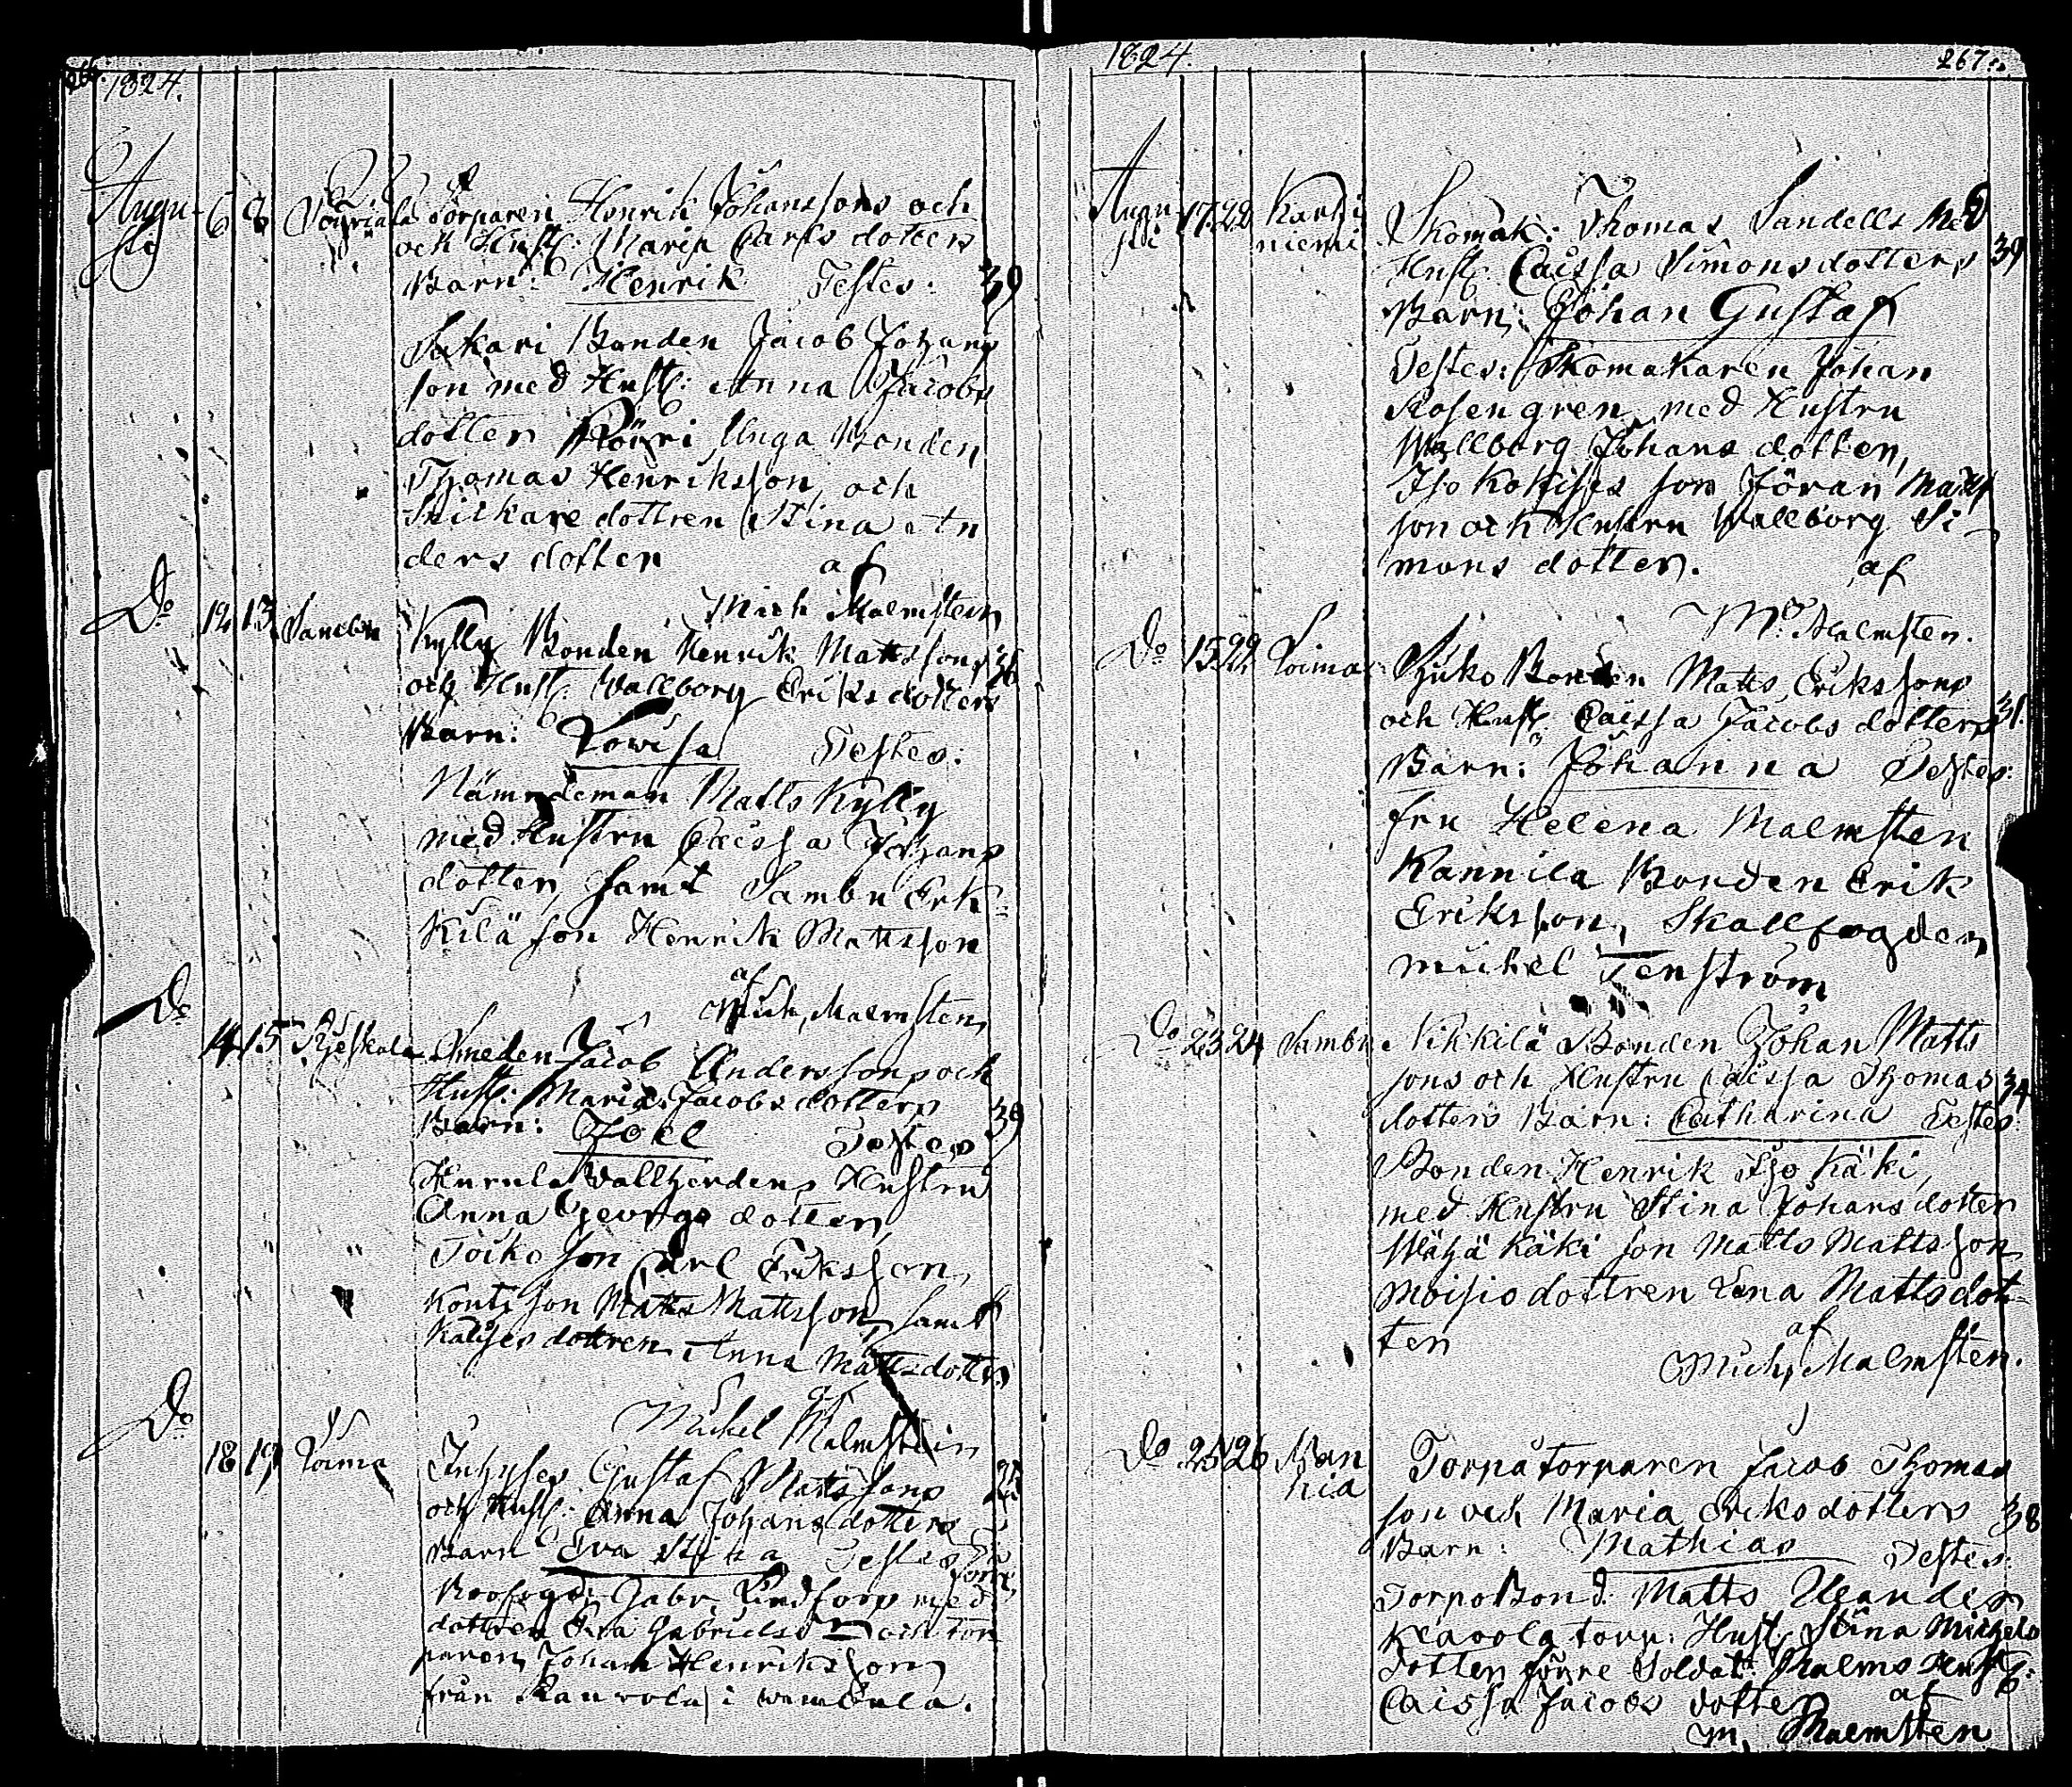 1824.
Augu-
sti 6 8
Torparen Henrik Johanssons och
och Hust: Maria Carls dotters
Barn: Henrik Testes: 39
Sukari Bonden Jacob Johans
son med Hust: Anna Jacobs
dotter Unga Bonden
Thomas Henriksson, och
Snickare dottren Stina An
ders dotter af
Mich Malmsten
Do 12 13
Kylly Bonden Henrik Mattssons 36
och Hust: Wallborg Eriks dotters
Barn: Lowisa Testes:
Nämndeman Matts Kylly
med Hustru Caissa Johans
dotter, samt Sambu Erk-
kilä son Henrik Mattsson
af
Mich, Malmsten
Do 14 15
Smeden Jacob Anderssons och
Hust: Maria Jacobs dotters 39
Barn: Joel Testes
Hurula Vallherdens Hustru
Anna Georgs dotter,
Toiko son Carl Eriksson,
Kontj son Matts Mattsson, samt
dottren Anna Mattsdotter
af
Mickel Malmstein
Do 18 19 Loima
Gustaf Mattssons
och Hust: Anna Johansdotters
Barn Eva Stina Testes
Gabr. Lindfors med
dottren Eva Gabriels och tor
paren Johan Henriksson
från i
1824. 267.
Augu
sti 17 22 Karhi
niemi
Skomak: Thomas Sandells Med
Hust: Caissa Simonsdotters 39
Barn: Johan Gustaf
Testes: Skomakaren Johan
Rosengren med Hustru
Wallborg Johans dotter,
Iso son Jöran Matts
son och Hustru Wallborg Si-
mons dotter. af
M: Malmsten.
Do 15 22 Loima
Bonden Matts Erikssons
och Hust: Caissa Jacobs dotters 31.
Barn: Johanna Testes:
fru Helena Malmsten
Kannila Bonden Erik
Eriksson, Skallfogden
Michel Tenström
Do 23 24 Sambu
Nikkilä Bonden Johan Matts
sons och Hustru Caissa Thomas 34
dotters Barn: Catharina Testes:
Bonden Henrik Iso Käki,
med Hustru Stina Johansdotter
Wähä Käki son Matts Mattsson
Moisio dottren Lena Mattsdot-
ter
af
Mich, Malmsten.
Do 25 26
Torpa torparen Jacob Thomas
son och Maria Eriksdotters 38
Barn: Mathias Testes:
Torpo Bond: Matts
torp: Hust: Stina Michels
dotter förre Soldat: Malms Hust:
Caissa Jacobs dotter af
M, Malmsten